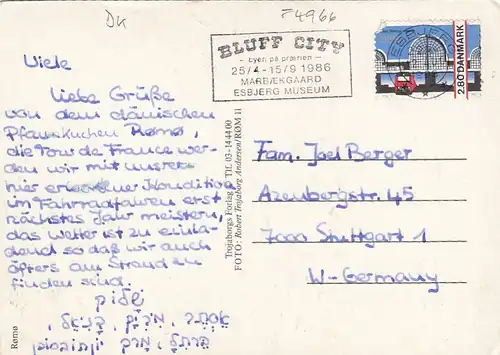 DK
F4966
BLUFF CITY
- byen på prærien -
25/4 - 15/9 1986
MARBÆKGAARD
ESBJERG MUSEUM
2.80 DANMARK
Viele
liebe Grüße
von dem dänischen
Pfannkuchen Rømø,
die Tour de France wer-
den wir mit unserer
hier Kondition
im Fahrradfahren erst
nächstes Jahr meistern,
das Wetter ist zu einla-
dend so daß wir auch
öfters am Strand zu
finden sind.
שלום
אסתר, מרים, דניאל,
Trojaborgs Forlag ® Tlf. 03-14 44 00
FOTO: Robert Trojaborg Andersen/RØM 11
Fam. Joel Berger
Azenbergstr. 45
7000 Stuttgart 1
W-Germany
Rømø